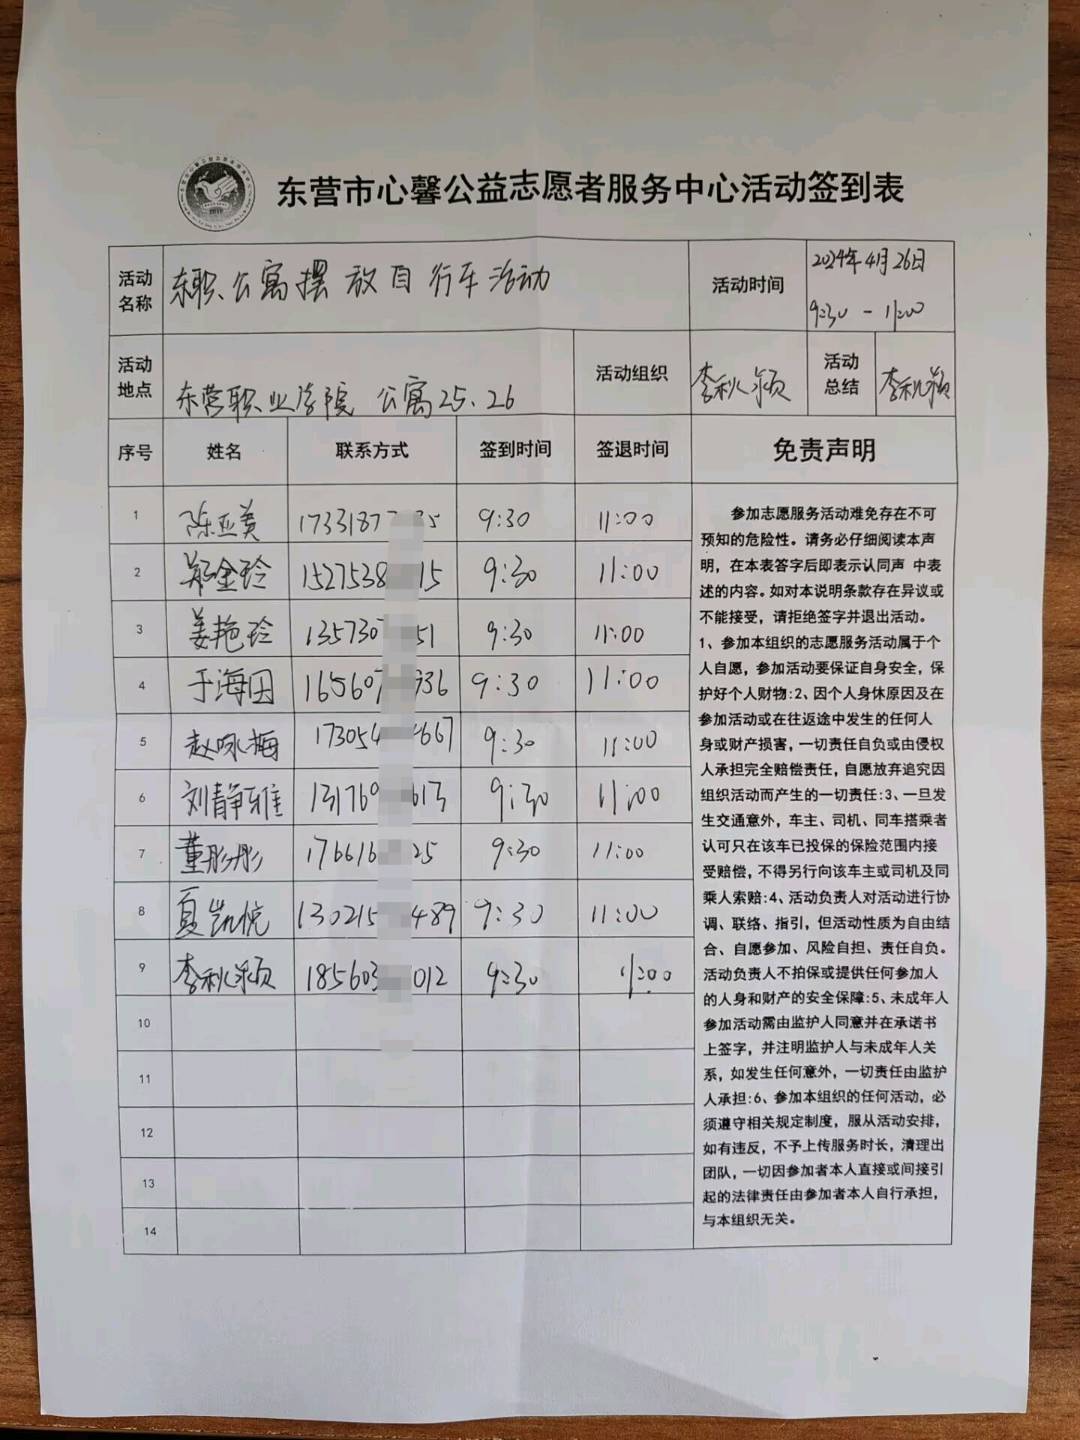 东营市心馨公益志愿者服务中心活动签到表
活动名称 东职公寓摆放自行车活动 活动时间 2024年4月26日
9:30 - 11:00
活动地点 东营职业学院 公寓25.26 活动组织 李秋颖 活动总结 李秋颖
序号 姓名 联系方式 签到时间 签退时间 免责声明
1 陈亚美 1733187 35 9:30 11:00
2 郑金玲 1527538 15 9:30 11:00
3 姜艳玲 135730 51 9:30 11:00
4 于海田 165607 936 9:30 11:00
5 赵咏梅 173054 4667 9:30 11:00
6 刘静雅 131769 613 9:30 11:00
7 董彤彤 176616 25 9:30 11:00
8 夏凯悦 130215 489 9:30 11:00
9 李秋颖 185603 012 9:30 11:00
10
11
12
13
14
参加志愿服务活动难免存在不可
预知的危险性。请务必仔细阅读本声
明，在本表答字后即表示认同声 中表
述的内容。如对本说明条款存在异议或
不能接受，请拒绝签字并退出活动。
1、参加本组织的志愿服务活动属于个
人自愿，参加活动要保证自身安全，保
护好个人财物:2、因个人身休原因及在
参加活动或在往返途中发生的任何人
身或财产损害，一切责任自负或由侵权
人承担完全赔偿责任，自愿放弃追究因
组织活动而产生的一切责任:3、一旦发
生交通意外，车主、司机、同车搭乘者
认可只在该车已投保的保险范围内接
受赔偿，不得另行向该车主或司机及同
乘人索赔:4、活动负责人对活动进行协
调、联络、指引，但活动性质为自由结
合、自愿参加、风险自担、责任自负。
活动负责人不拍保或提供任何参加人
的人身和财产的安全保障:5、未成年人
参加活动需由监护人同意并在承诺书
上签字，并注明监护人与未成年人关
系，如发生任何意外，一切责任由监护
人承担:6、参加本组织的任何活动，必
须遵守相关规定制度，服从活动安排，
如有违反，不予上传服务时长，清理出
团队，一切因参加者本人直接或间接引
起的法律责任由参加者本人自行承担，
与本组织无关。